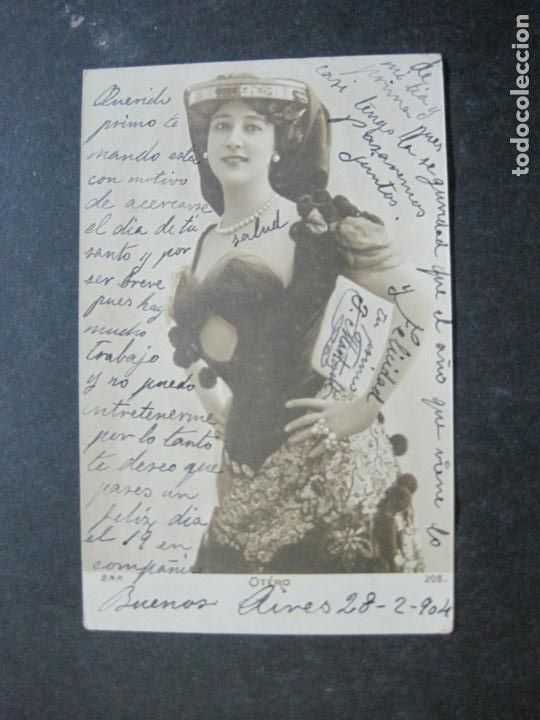 Querido
primo te
mando este
con motivo
de acercarse
el dia de tú
santo y por
ser breve
pues hay
mucho
trabajo
y no puedo
entretenerme
por lo tanto
te deseo que
pases un
feliz dia
el 19 en
compañia
de
mi tia y
prima pues
casi tengo la seguridad que el año que viene lo
pazaremos
juntos.
salud
y Felicidad
tu primo
B.N.K.
OTÉRO
208.
Buenos Aires 28-2-904
todocoleccion.net